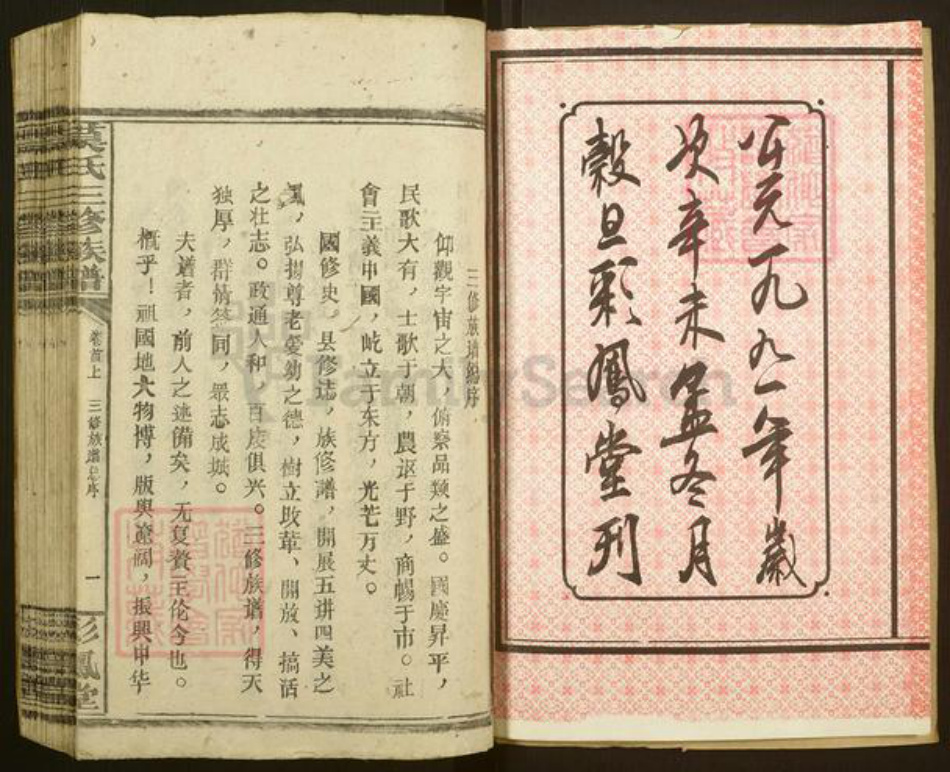 公元一九九一年歲
次辛未孟冬月
穀旦彩鳳堂刊
三修族譜編序
仰觀宇宙之大，俯察品類之盛。國慶昇平，
民歌大有，士歌于朝，農讴于野，商暢于市。社
會主義中國，屹立于东方，光芒万丈。
國修史，县修志，族修譜，開展五讲四美之
風，弘揚尊老愛幼之德，樹立改革、開放、搞活
之壮志。政通人和，百废俱兴。三修族谱，得天
独厚，群情签同，眾志成城。
夫譜者，前人之述備矣，无复贅王伦今也。
概乎！祖國地大物博，版輿遼阔，振興中华
氏三修族譜
卷首上
三修族譜序
一
彩鳳堂
FamilySearch